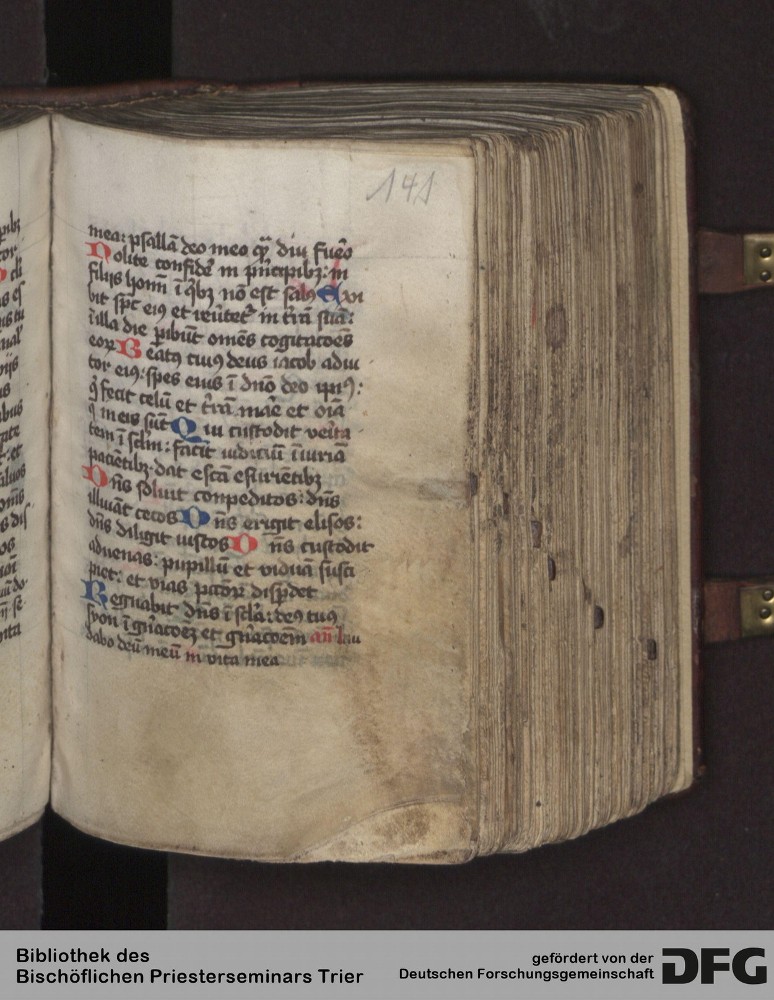 141
mea: psallā deo meo qͣ diu fuero
Nolite confideꝛ in pⁿcipibꝫ: in
filijs homı̄ ī qͥbꝫ nō est salꝰ Exi
bit spc̄ eiꝰ et reūtetᷣ in t̄rā suā:
ī illa die ꝑibūt omēs cogitacōes
eoꝝ Beatꝰ cuiꝰ deus iacob adiu
tor eiꝰ: spes eius ī dn̄o deo ipiꝰ:
qͥ fecit celū et t̄rā maͬe et oīa
q̄ in eis sūt Qui custodit veͥta
tem ī sc̄lm: facit iudiciū īiuriā
pacientibꝫ. dat escā esurientibꝫ
Dn̄s soluit conpeditos: dn̄s
illuīat cecos Dn̄s erigit elisos:
dn̄s diligit iustos Dn̄s custodit
aduenas: pupillū et viduā susci
piet: et vias pc̄coꝝ disꝑdet
Regnabit dn̄s ī sc̄la: deꝰ tuꝰ
syon ī gn̄acōeꝫ et gn̄acoēm añ Lau
dabo deū meū in vita mea
Bibliothek des
Bischöflichen Priesterseminars Trier
gefördert von der
Deutschen Forschungsgemeinschaft
DFG